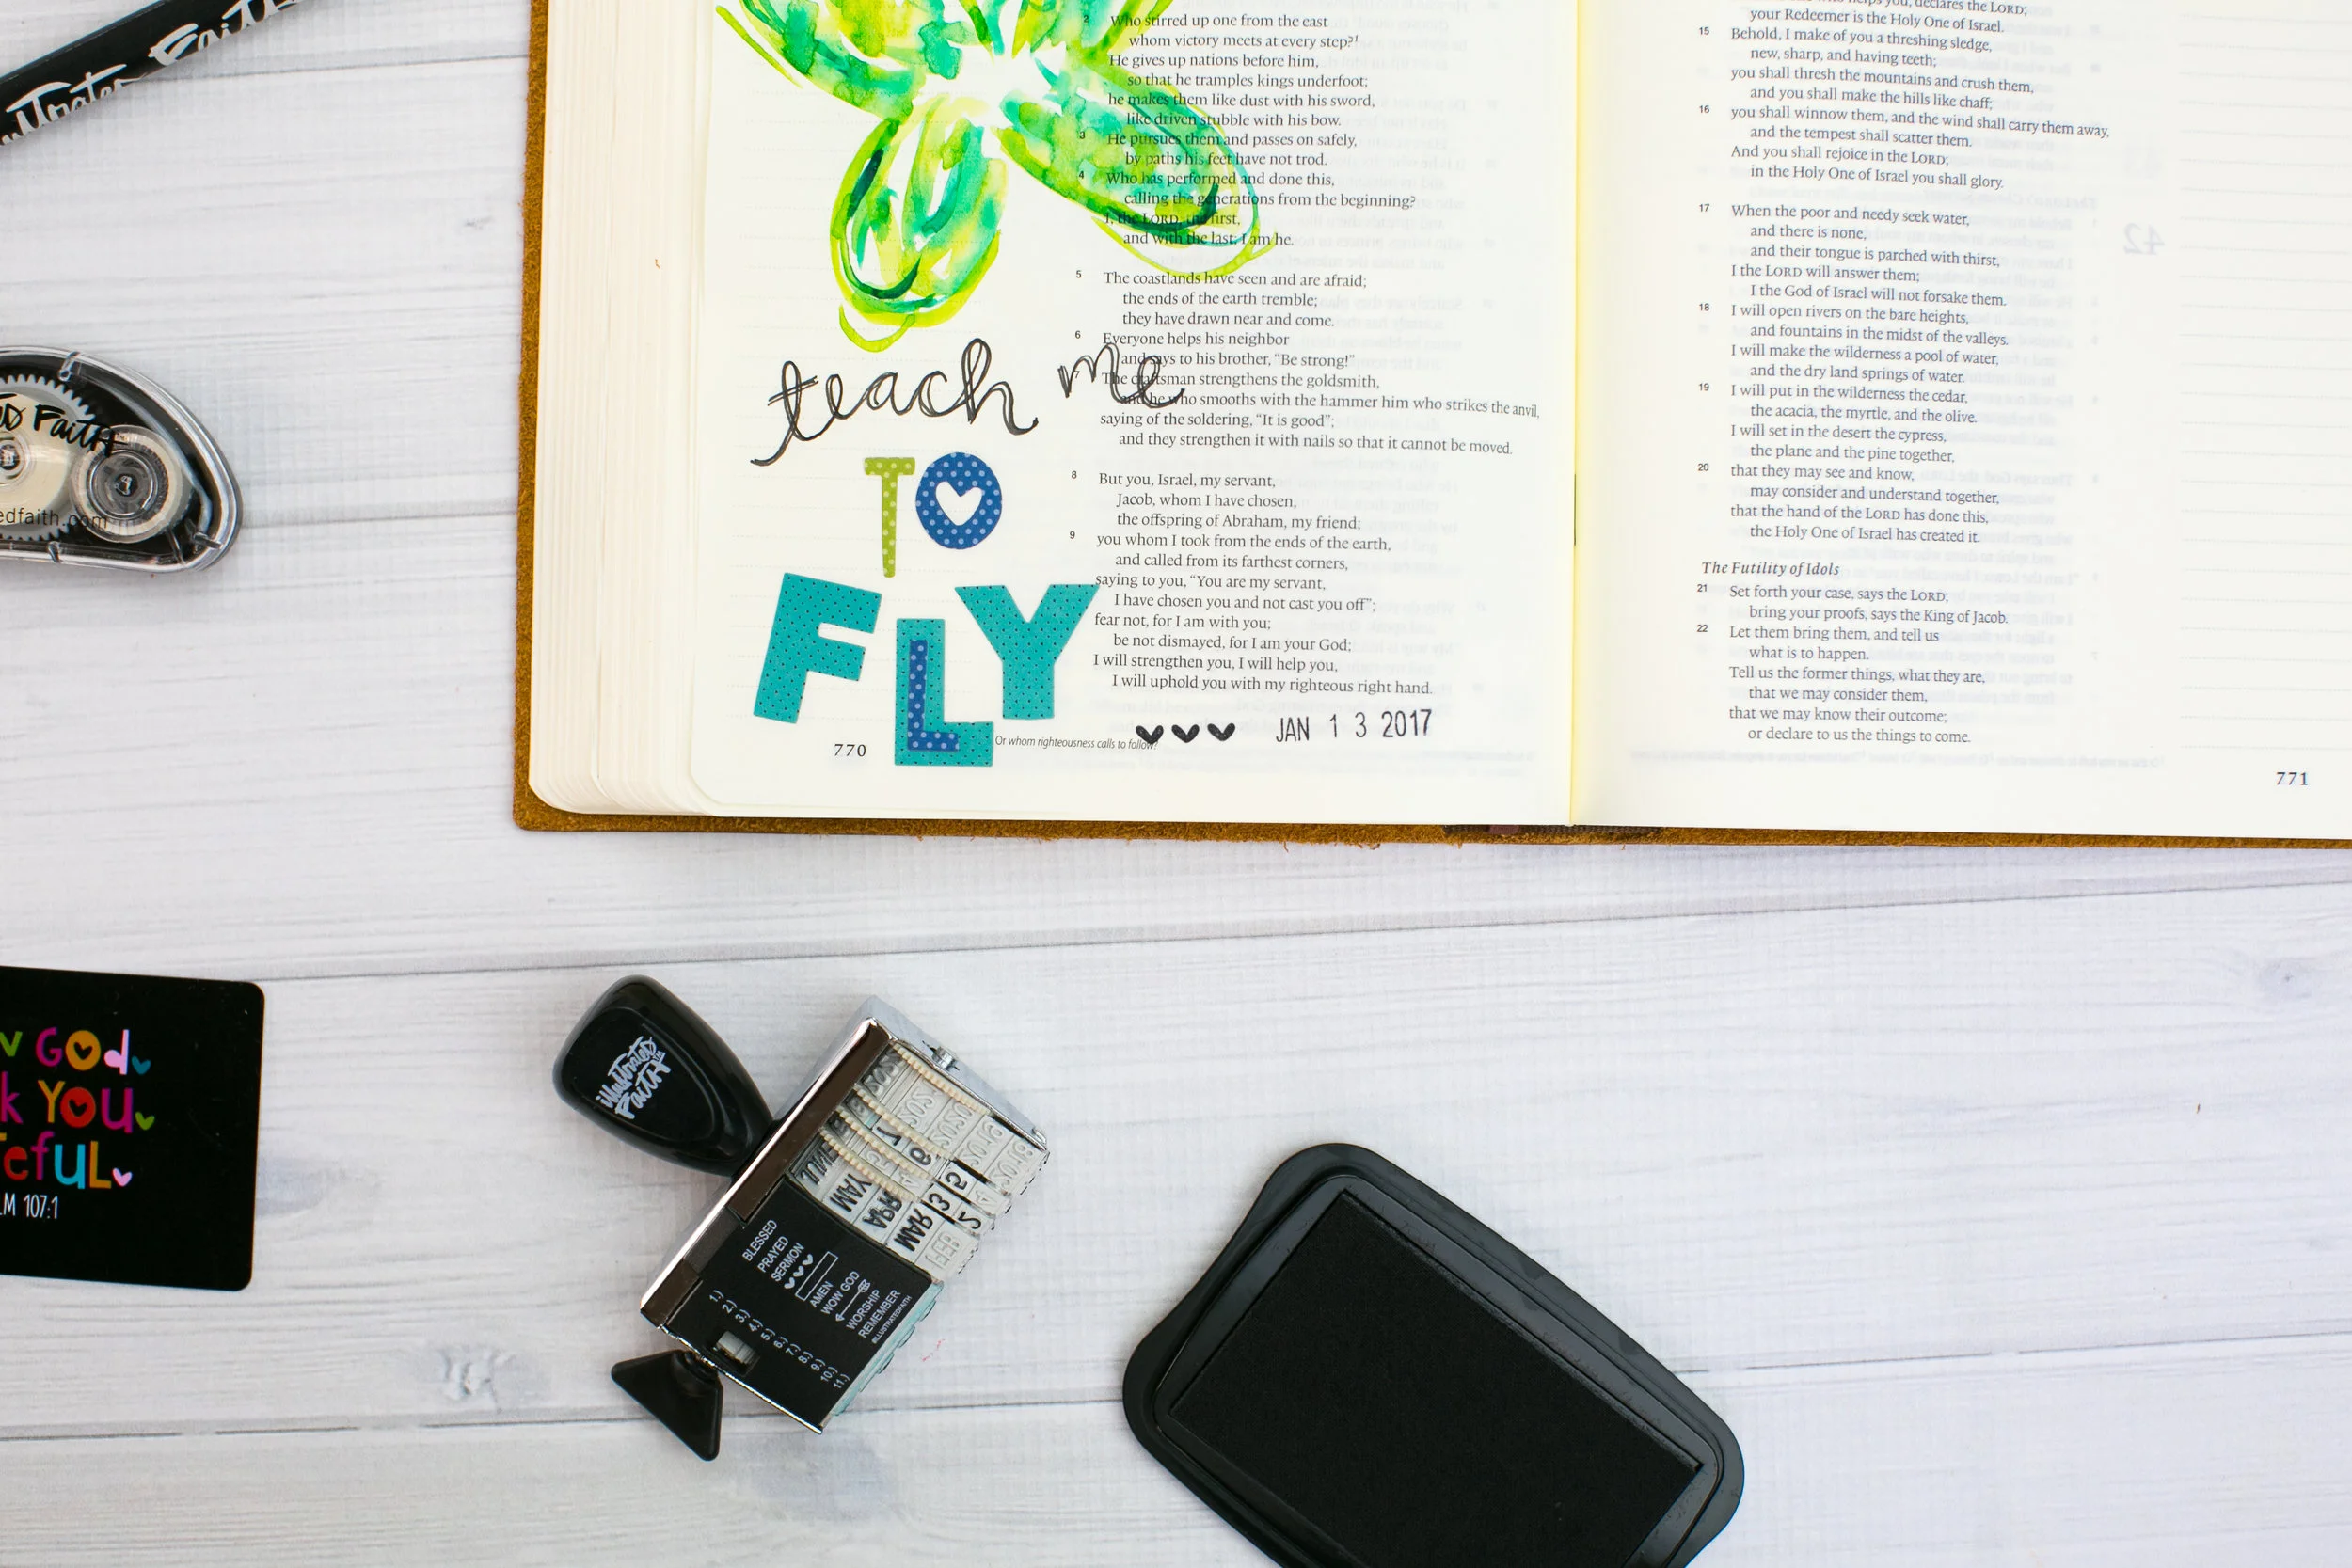 Illustrated Faith
2 Who stirred up one from the east
whom victory meets at every step?¹
He gives up nations before him,
so that he tramples kings underfoot;
he makes them like dust with his sword,
like driven stubble with his bow.
3 He pursues them and passes on safely,
by paths his feet have not trod.
4 Who has performed and done this,
calling the generations from the beginning?
I, the LORD, the first,
and with the last; I am he.
5 The coastlands have seen and are afraid;
the ends of the earth tremble;
they have drawn near and come.
6 Everyone helps his neighbor
and says to his brother, “Be strong!”
7 The craftsman strengthens the goldsmith,
and he who smooths with the hammer him who strikes the anvil,
saying of the soldering, “It is good”;
and they strengthen it with nails so that it cannot be moved.
8 But you, Israel, my servant,
Jacob, whom I have chosen,
the offspring of Abraham, my friend;
9 you whom I took from the ends of the earth,
and called from its farthest corners,
saying to you, “You are my servant,
I have chosen you and not cast you off”;
fear not, for I am with you;
be not dismayed, for I am your God;
I will strengthen you, I will help you,
I will uphold you with my righteous right hand.
teach me
TO
FLY
JAN 1 3 2017
770
Or whom righteousness calls to follow?
helps you, declares the LORD;
your Redeemer is the Holy One of Israel.
15 Behold, I make of you a threshing sledge,
new, sharp, and having teeth;
you shall thresh the mountains and crush them,
and you shall make the hills like chaff;
16 you shall winnow them, and the wind shall carry them away,
and the tempest shall scatter them.
And you shall rejoice in the LORD;
in the Holy One of Israel you shall glory.
17 When the poor and needy seek water,
and there is none,
and their tongue is parched with thirst,
I the LORD will answer them;
I the God of Israel will not forsake them.
18 I will open rivers on the bare heights,
and fountains in the midst of the valleys.
I will make the wilderness a pool of water,
and the dry land springs of water.
19 I will put in the wilderness the cedar,
the acacia, the myrtle, and the olive.
I will set in the desert the cypress,
the plane and the pine together,
20 that they may see and know,
may consider and understand together,
that the hand of the LORD has done this,
the Holy One of Israel has created it.
The Futility of Idols
21 Set forth your case, says the LORD;
bring your proofs, says the King of Jacob.
22 Let them bring them, and tell us
what is to happen.
Tell us the former things, what they are,
that we may consider them,
that we may know their outcome;
or declare to us the things to come.
771
Faith
edfaith.com
W GOd
k YOU
eful
LM 107:1
illustrated
Faith
JUN
MAY
APR
MAR
FEB
BLESSED
PRAYED
SERMON
AMEN
WOW GOD
WORSHIP
REMEMBER
#ILLUSTRATEDFAITH
1.)
2.)
3.)
4.)
5.)
6.)
7.)
8.)
9.)
10.)
11.)